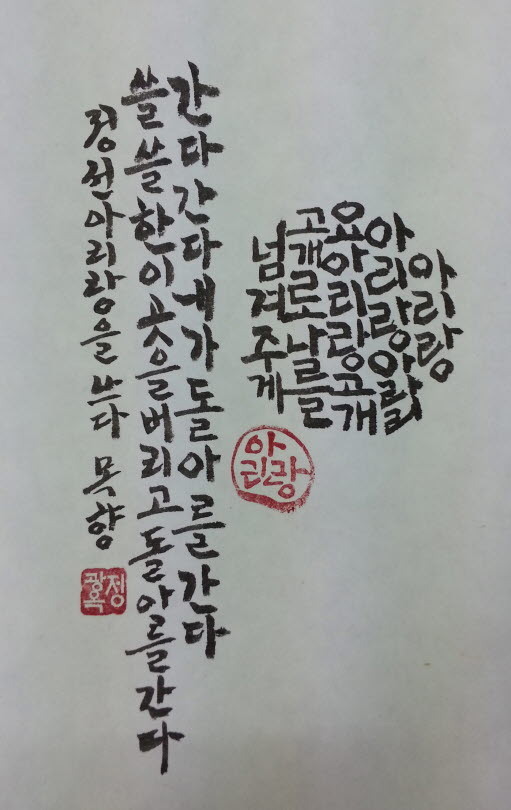 아리랑
아리랑아라리
요아리랑고개
고개로날를
넘겨주게
아리랑
간다간다내가돌아를간다
쓸쓸한이곳을버리고돌아를간다
정선아리랑을쓰다 목향
정광옥